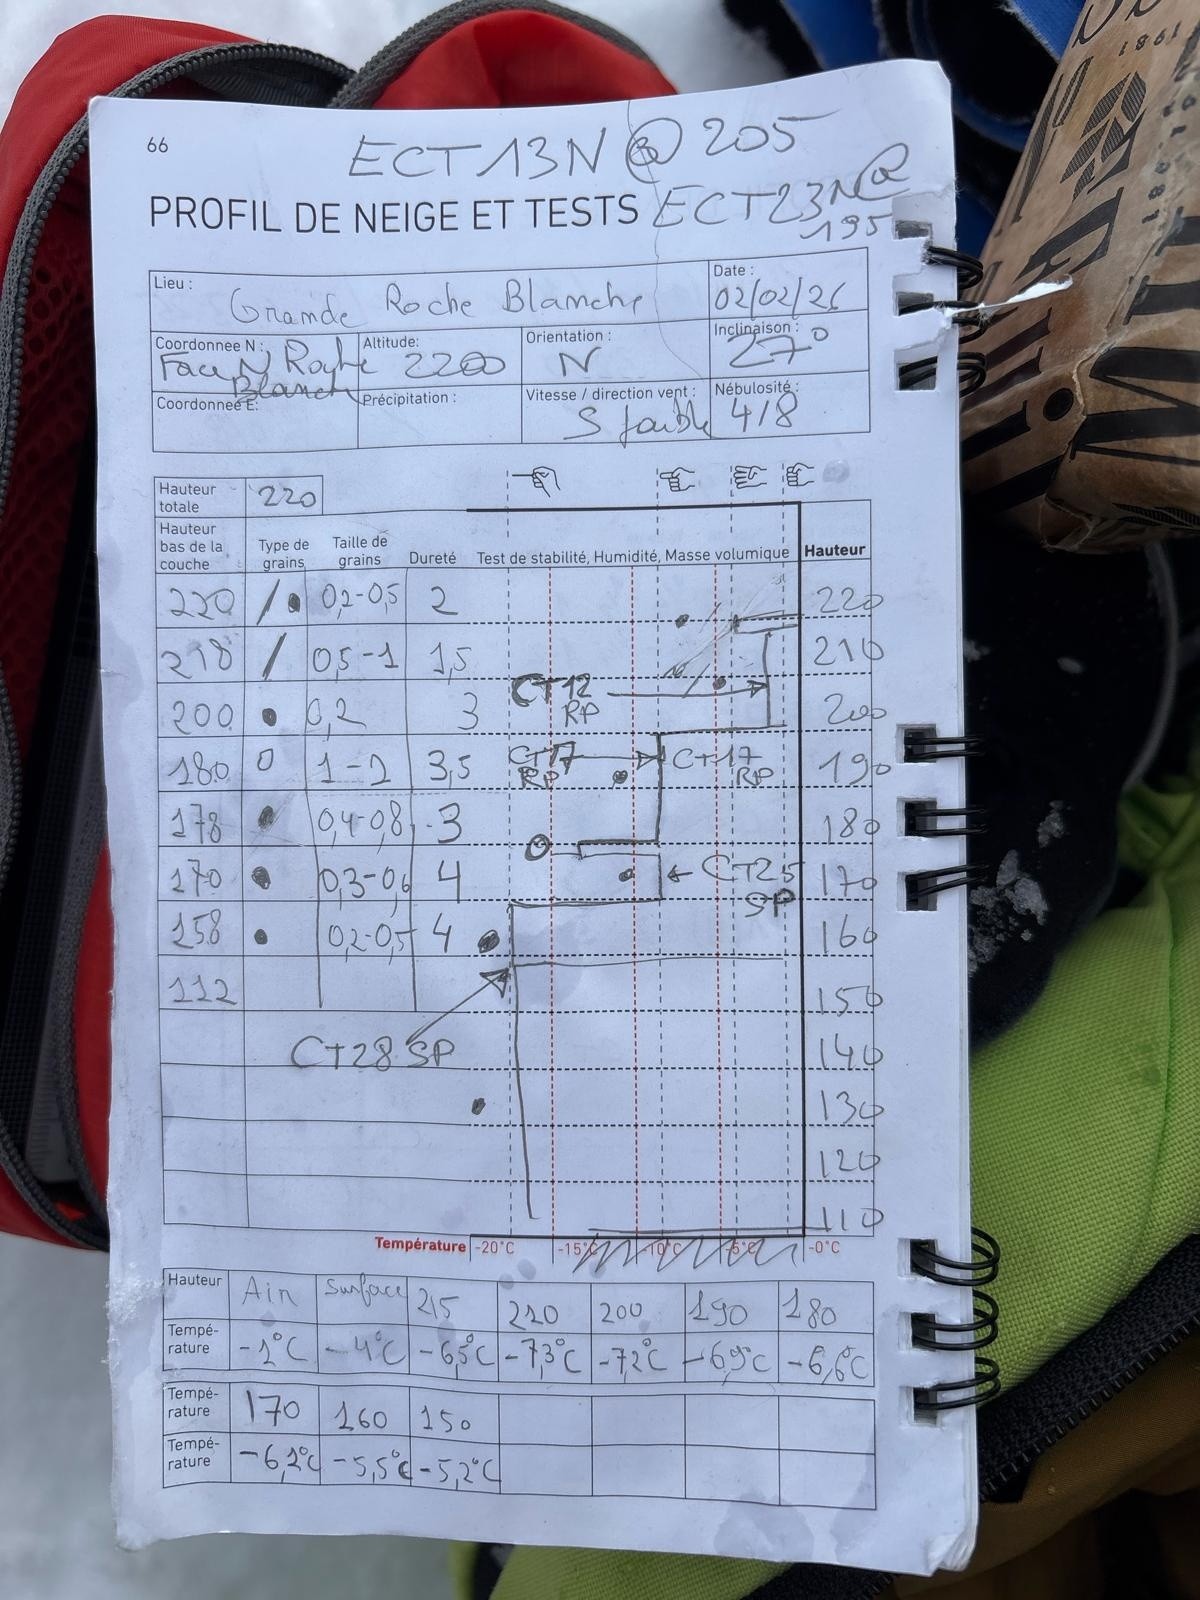 66
ECT13N @ 205
PROFIL DE NEIGE ET TESTS ECT23N@
195
Lieu : Grande Roche Blanche
Date : 02/02/26
Coordonnee N : Face N Roche Blanche
Altitude: 2200
Orientation : N
Inclinaison : 27°
Coordonnée E:
Précipitation :
Vitesse / direction vent : S faible
Nébulosité : 4/8
Hauteur totale 220
Hauteur bas de la couche Type de grains Taille de grains Dureté Test de stabilité, Humidité, Masse volumique Hauteur
220 / • 0,2-0,5 2 220
218 / 0,5-1 1,5 210
CT12 RP
200 • 0,2 3 200
180 O 1-2 3,5 CT17 RP CT17 RP 190
178 • 0,4-0,8 3 180
170 • 0,3-0,6 4 ← CT25 SP 170
158 • 0,2-0,5 4 160
112 150
CT28 SP 140
130
120
110
Température -20°C -15°C -10°C -5°C -0°C
Hauteur Air Surface 215 210 200 190 180
Tempé-rature -1°C -4°C -6,5°C -7,3°C -7,2°C -6,9°C -6,6°C
Tempé-rature 170 160 150
Tempé-rature -6,2°C -5,5°C -5,2°C
1981